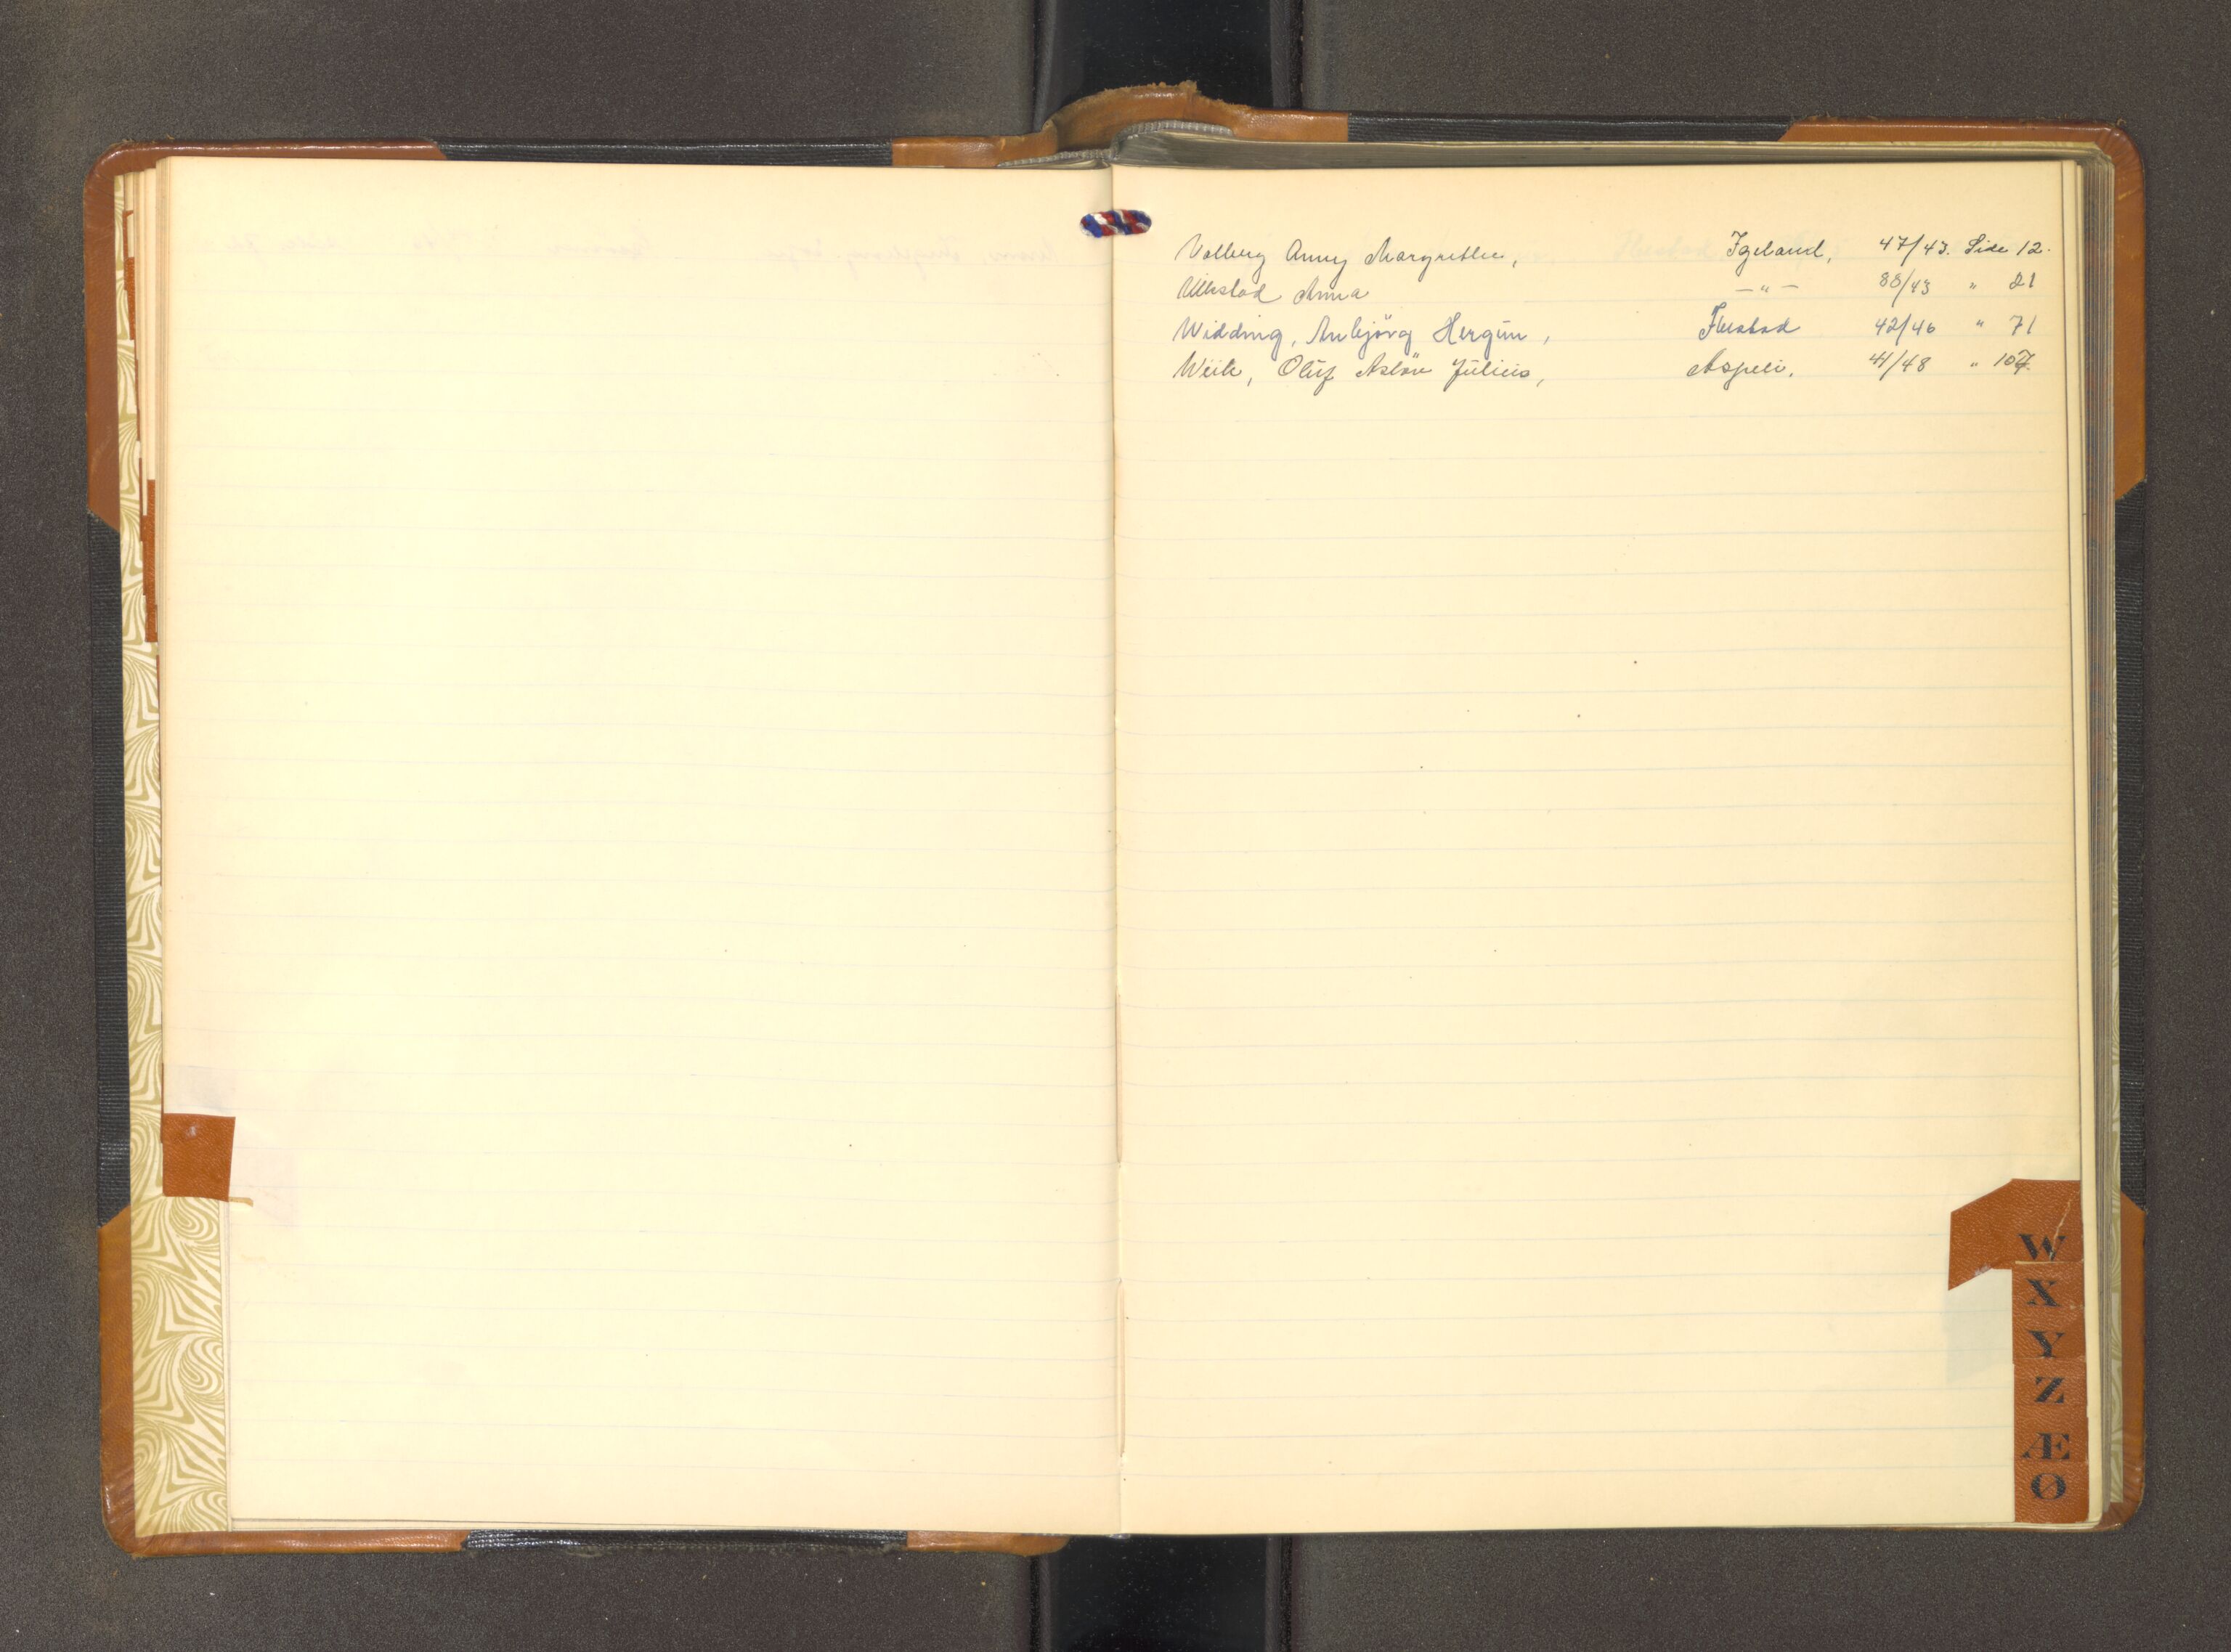 Volberg Anny Margrethe, Igeland, 47/43. Side 12.
Ullestad Anna —"— 88/43 " 21
Widding, Anbjörg Hergun, 42/46 " 71
Weile, Oluf Julius, Aspeli. 41/48 " 107.
W
X
Y
Z
Æ
Ø